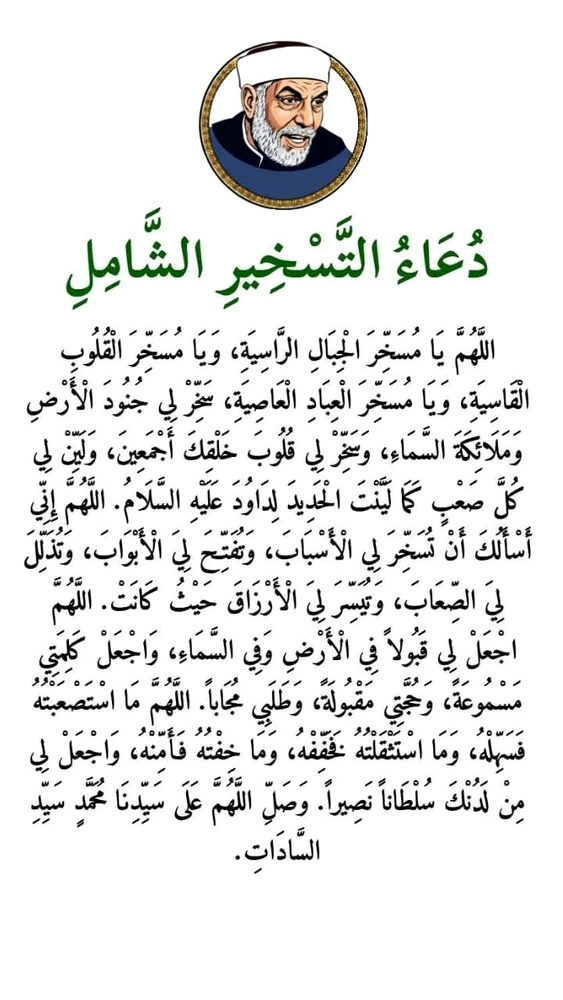 دُعَاءُ التَّسْخِيرِ الشَّامِلِ
اللَّهُمَّ يَا مُسَخِّرَ الْجِبَالِ الرَّاسِيَةِ، وَيَا مُسَخِّرَ الْقُلُوبِ
الْقَاسِيَةِ، وَيَا مُسَخِّرَ الْعِبَادِ الْعَاصِيَةِ، سَخِّرْ لِي جُنُودَ الْأَرْضِ
وَمَلَائِكَةَ السَّمَاءِ، وَسَخِّرْ لِي قُلُوبَ خَلْقِكَ أَجْمَعِينَ، وَلَيِّنْ لِي
كُلَّ صَعْبٍ كَمَا لَيَّنْتَ الْحَدِيدَ لِدَاوُدَ عَلَيْهِ السَّلَامُ. اللَّهُمَّ إِنِّي
أَسْأَلُكَ أَنْ تُسَخِّرَ لِي الْأَسْبَابَ، وَتُفَتِّحَ لِيَ الْأَبْوَابَ، وَتُذَلِّلَ
لِيَ الصِّعَابَ، وَتُيَسِّرَ لِيَ الْأَرْزَاقَ حَيْثُ كَانَتْ. اللَّهُمَّ
اجْعَلْ لِي قَبُولاً فِي الْأَرْضِ وَفِي السَّمَاءِ، وَاجْعَلْ كَلِمَتِي
مَسْمُوعَةً، وَحُجَّتِي مَقْبُولَةً، وَطَلَبِي مُجَاباً. اللَّهُمَّ مَا اسْتَصْعَبْتُهُ
فَسَهِّلْهُ، وَمَا اسْتَثْقَلْتُهُ فَخَفِّفْهُ، وَمَا خِفْتُهُ فَأَمِّنْهُ، وَاجْعَلْ لِي
مِنْ لَدُنْكَ سُلْطَاناً نَصِيراً. وَصَلِّ اللَّهُمَّ عَلَى سَيِّدِنَا مُحَمَّدٍ سَيِّدِ
السَّادَاتِ.